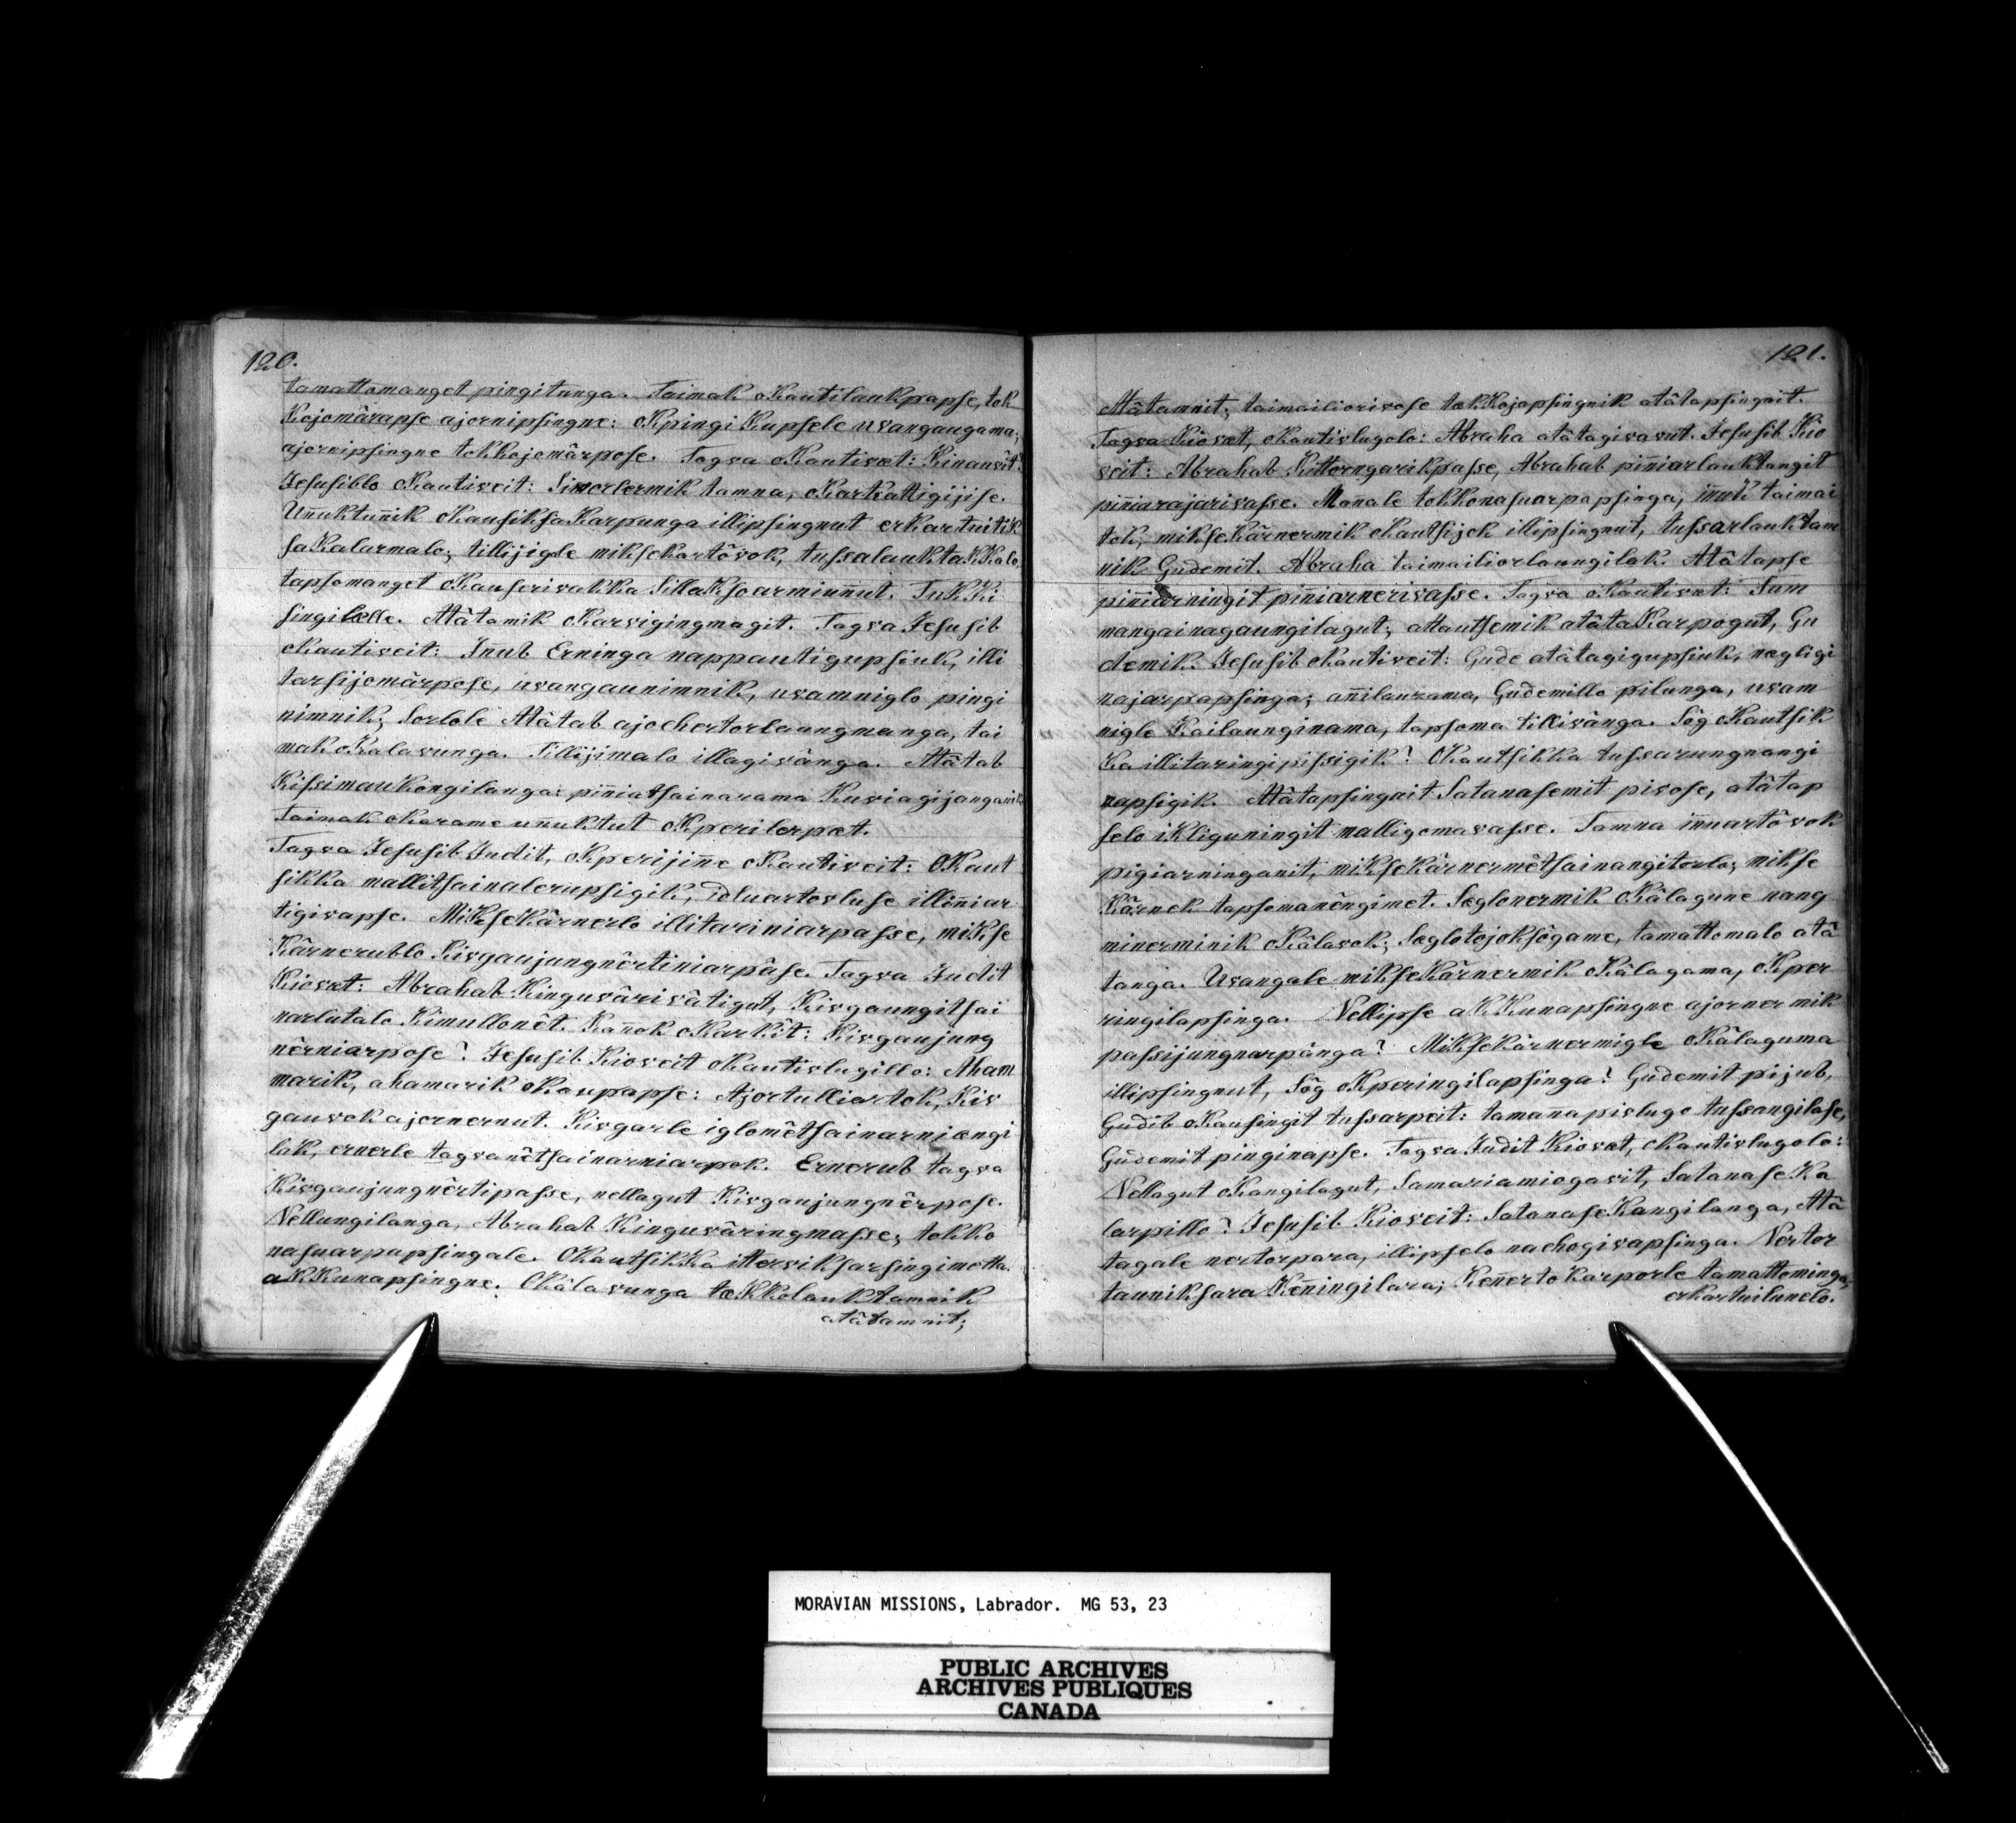 120.
tamattomanget pingitunga. Taimak oKautilaukpapse, tok
Kojomârapse ajornipsingne: oKpingiKupsele uvangaugama,
ajornipsingne tokkojomârpose. Tagva oKautivæt: Kinauvit?
Jesusiblo oKautiveit: Sivorlermik tamna, oKarkattigijise.
Unnuktunnik oKausiksaKarpunga illipsingnut erKartuitik
saKalarmalo; tillijigle miksekartôvok, tussalauktakKalo
tapsomanget oKauserivakka Sillaksoarmiunnut. TukKi
singilælle. Atâtamik oKarvigingmagit. Tagva Jesusib
oKautiveit: Innub Erninga nappautigupsiuk, illi
tarsijomârpose, uvangaunimnik, uvamniglo pingi
nimnik; Sorlole Atâtab ajochertorlaungmanga, tai
mak oKalavunga. Tillijimalo illagivânga. Atâtab
Kissimaukongilanga: pinniatsainarama Kuviagijanganik
Taimak oKarame unnuktut oKperilerpæt.
Tagva Jesusib Judit, oKperijinne oKautiveit: OKaut
sikka mallitsainalerupsigik, idluartovluse illinniar
tigivapse. MiKseKârnerlo illitariniarpasse, miKse
Kârnerublo Kivgaujungnêrtiniarpâse. Tagva Judit
Kiovæt: Abrahab Kinguvârivâtigut, Kivgaungitsai
narlutalo Kimullonêt. Kannok oKarkît: Kivgaujung
nêrniarpose? Jesusib Kioveit oKautivlugillo: Aham
marik, ahamarik oKaupapse: Ajortulliortok, Kiv
gauvok ajornernut. Kivgarle iglomêtsainarniængi
lak, ernerle tagvanêtsainarniarpok. Ernerub tagva
Kivgaujungnêrtipasse, nellagut Kivgaujungnêrpose.
Nellungilanga, Abrahab Kinguvâringmasse; tokko
nasuarpapsingale. OKautsikKa itterviksarsingimetta.
akKunapsingne. OKâlavunga tækKolauktamnik
atâtamnit;
121.
Atâtamnit; taimailiorivose tækKojapsingnik atâtapsingnit.
Tagva Kiovæt, oKautivlugolo: Abraha atâtagivavut. Jesusib Kio
veit: Abrahab Kittorngarikpasse, Abrahab pinniarlauktangit
pinniarajarivasse. Mannale tokkonasuarpapsinga, innuk taimai
tok, mikseKârnermik oKautsijok illipsingnut, tussarlauktam
nik Gudemit. Abraha taimailiorlaungilak. Atâtapse
pinniarningit pinniarnerivasse. Tagva oKautivæt: Sum
mangainagaungilagut; attautsemik atâtaKarpogut, Gu
demik. Jesusib oKautiveit: Gude atâtagigupsiuk, nægligi
najarpapsinga; annilaurama, Gudemillo pilunga, uvam
nigle Kailaunginama, tapsoma tillivânga. Sôg oKautsik
Ka illitaringipissigik? OKautsikka tussarungnangi
napsigik. Atâtapsingnit Satanasemit pivose, atâtap
selo iKliguningit malligomavasse. Tamna innuartôvok
pigiarninganit, mikseKârnermêtsainangitorlo; mikse
Kârnek tapsomanêngimet. Sæglonermik oKâlagune nang
minerminik oKâlavok; Sæglotojoksôgame, tamattomalo atâ
tanga. Uvangale mikseKârnermik oKâlagama, oKper
ringilapsinga. Nellipse akKunapsingne ajornermik
passijungnarpânga? MikseKârnermigle oKâlaguma
illipsingnut, Sôg oKperingilapsinga? Gudemit pijub,
Gudib oKausingit tussarpeit: tamanapivluge tussangilase,
Gudemit pinginapse. Tagva Judit Kiovæt, oKautivlugolo:
Nellagut oKangilagut, Samariamiogavit, SatanaseKa
larpillo? Jesusib Kioveit: SatanaseKangilanga, Atâ
tagale nertorpara, illipselo nachogivapsinga. Nertor
tauniksara Kenningilara; KennertoKarporle tamattominga,
erkartuilunelo.
MORAVIAN MISSIONS, Labrador. MG 53, 23
PUBLIC ARCHIVES
ARCHIVES PUBLIQUES
CANADA